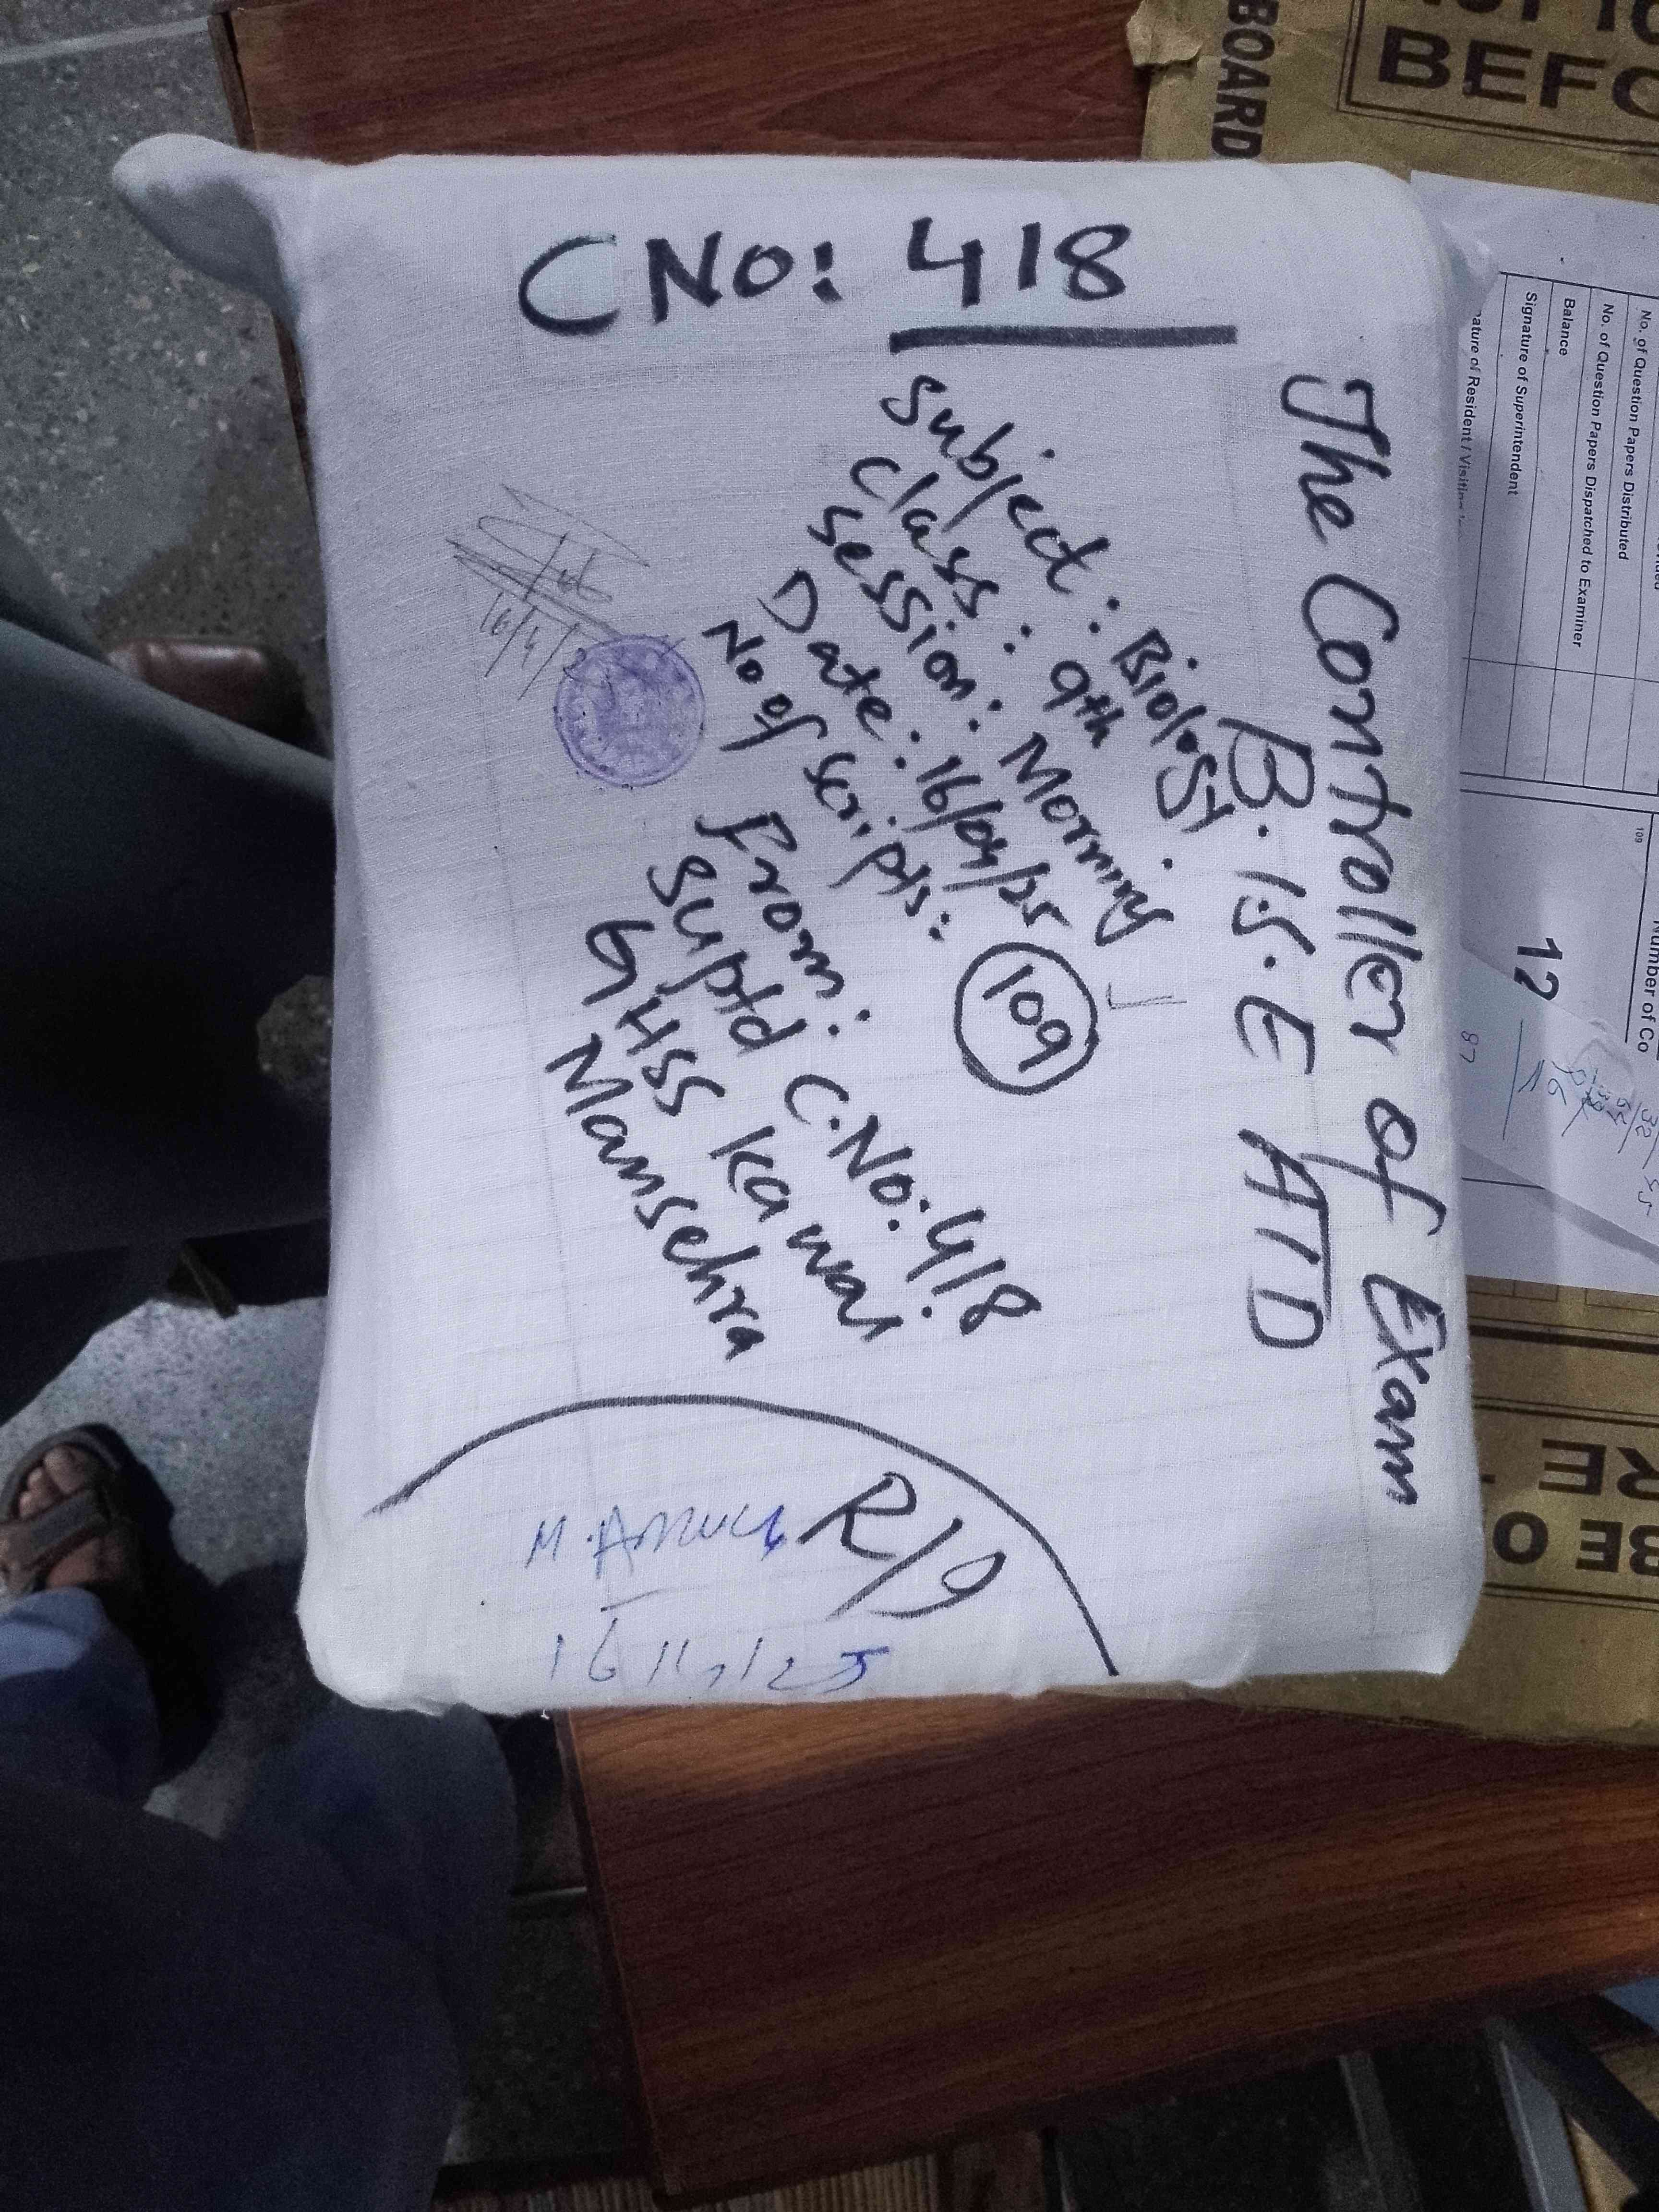 C No: 418
The Controller of Exam
B.I.S.E ATD
Subject: Biology
Class: 9th
Session: Morning
Date: 16/04/25
No of scripts: 109
From:
Suptd C.No: 418
GHSS Kawai
Mansehra
R/O
16/4/25
16/4/2
BOARD
BEFO
No. of Question Papers Distributed
No. of Question Papers Dispatched to Examiner
Balance
Signature of Superintendent
ature of Resident / Visiting
109
Number of Co
12
87
RE
BE O